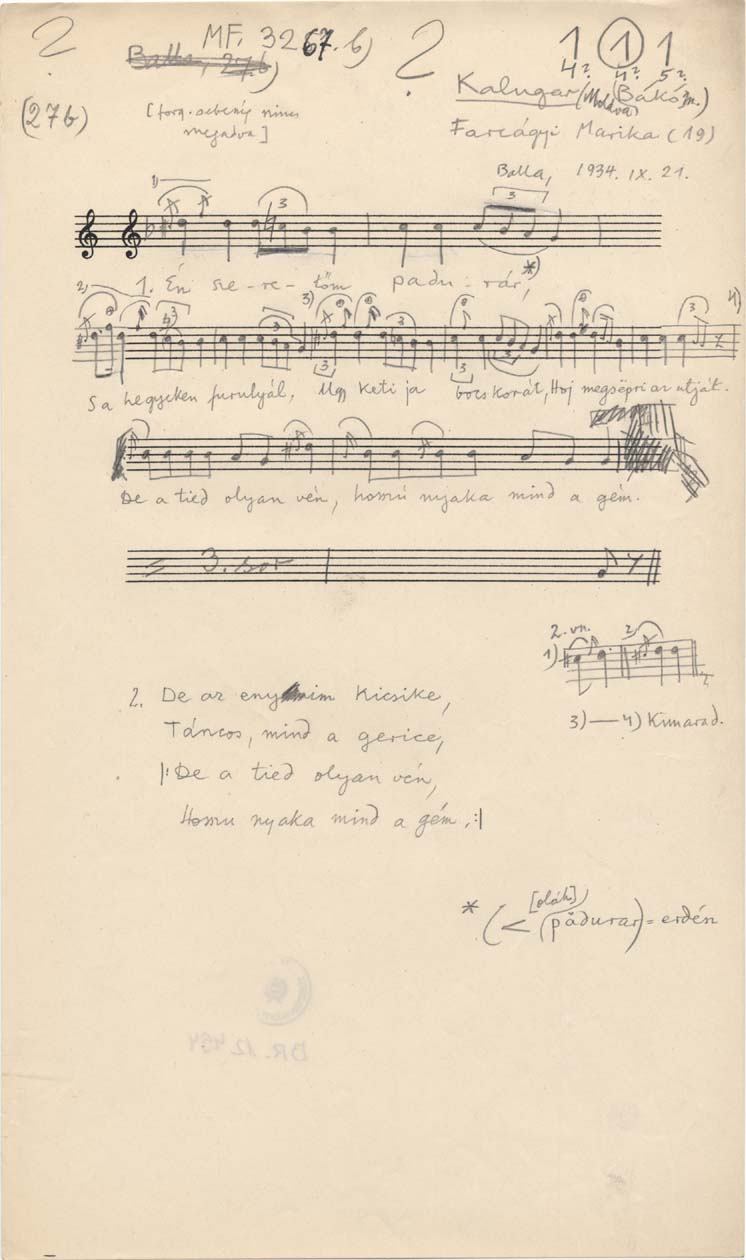 ? MF. 3267.b) ? 1 1 1
Balla, 27b) 4? 4? 5?
(27b) [forg. sebesség nincs megadva] Kalugar (Moldva) (Bákó m.)
Farcágyi Marika (19)
Balla, 1934. IX. 21.
1) 3 3
1. Én sze-re-tőm padu-rár, *)
2) 3 3 3) 3 3 3 3 3 4)
S a hegyeken furulyál, Ugy keti ja bocskorát, Hoj megsëpri az utját.
De a tied olyan vén, homú nyaka mind a gém.
= 3. sor
2. vn.
1) 2)
3)—4) Kimarad.
2. De az enyimim Kicsike,
Táncos, mind a gerice,
|: De a tied olyan vén,
Homu nyaka mind a gém. :|
[oláh]
* (< (pădurar) = erdén
BR. 12 454